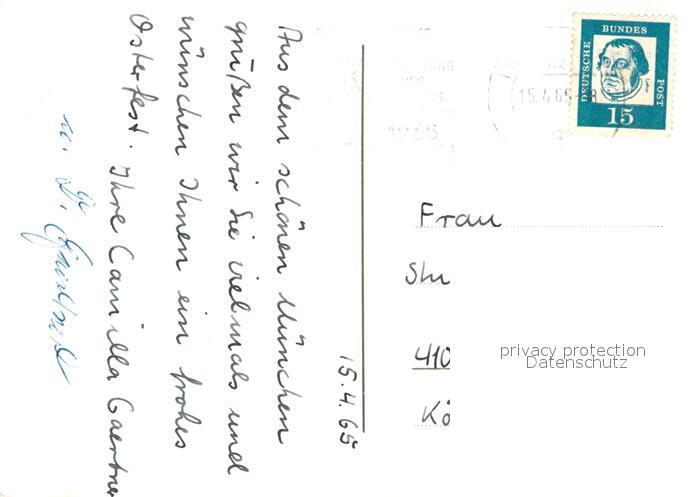 15.4.65
Aus dem schönen München
grüßen wir Sie vielmals und
wünschen Ihnen ein frohes
Osterfest. Ihre Camilla Gaertner
u. D.
DEUTSCHE BUNDES POST
15
15.4.65-8
1965
Frau
Stu
410
Kö
privacy protection
Datenschutz